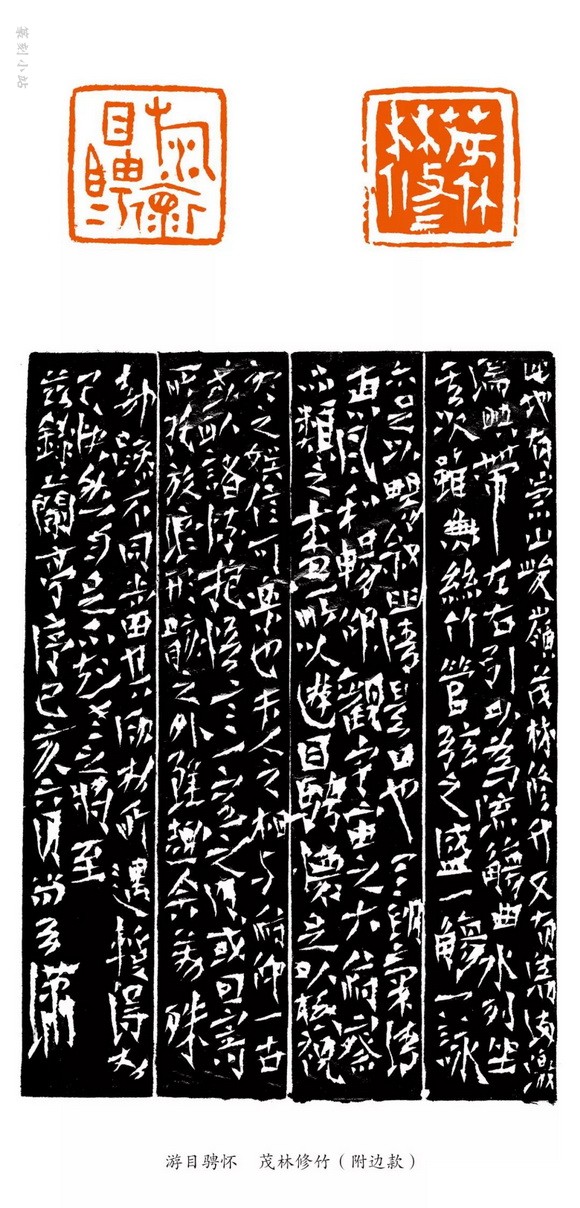 篆刻小站
游目骋怀
茂林修竹
此地有崇山峻嶺茂林修竹又有清流激
湍映帶左右引以為流觴曲水列坐
其次雖無絲竹管弦之盛一觴一詠
亦足以暢敘幽情是日也天朗氣清
惠風和暢仰觀宇宙之大俯察
品類之盛所以遊目騁懷足以極視
聽之娛信可樂也夫人之相与俯仰一世
或取諸懷抱悟言一室之內或因寄
所托放浪形骸之外雖趣舍萬殊
靜躁不同當其欣於所遇暫得於
己快然自足不知老之將至
茲錄蘭亭序己亥六月
游目骋怀 茂林修竹（附边款）